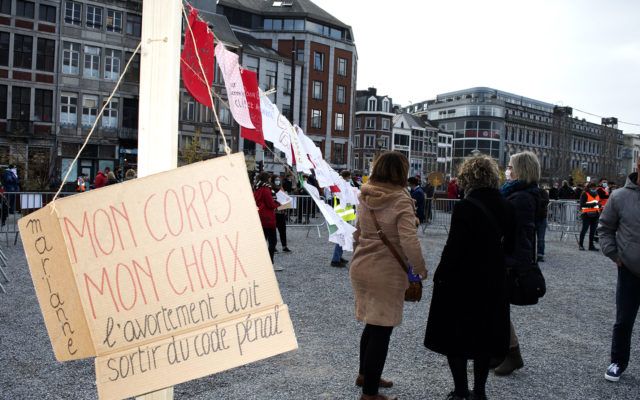 marianne
MON CORPS
MON CHOIX
l'avortement doit
sortir du code pénal